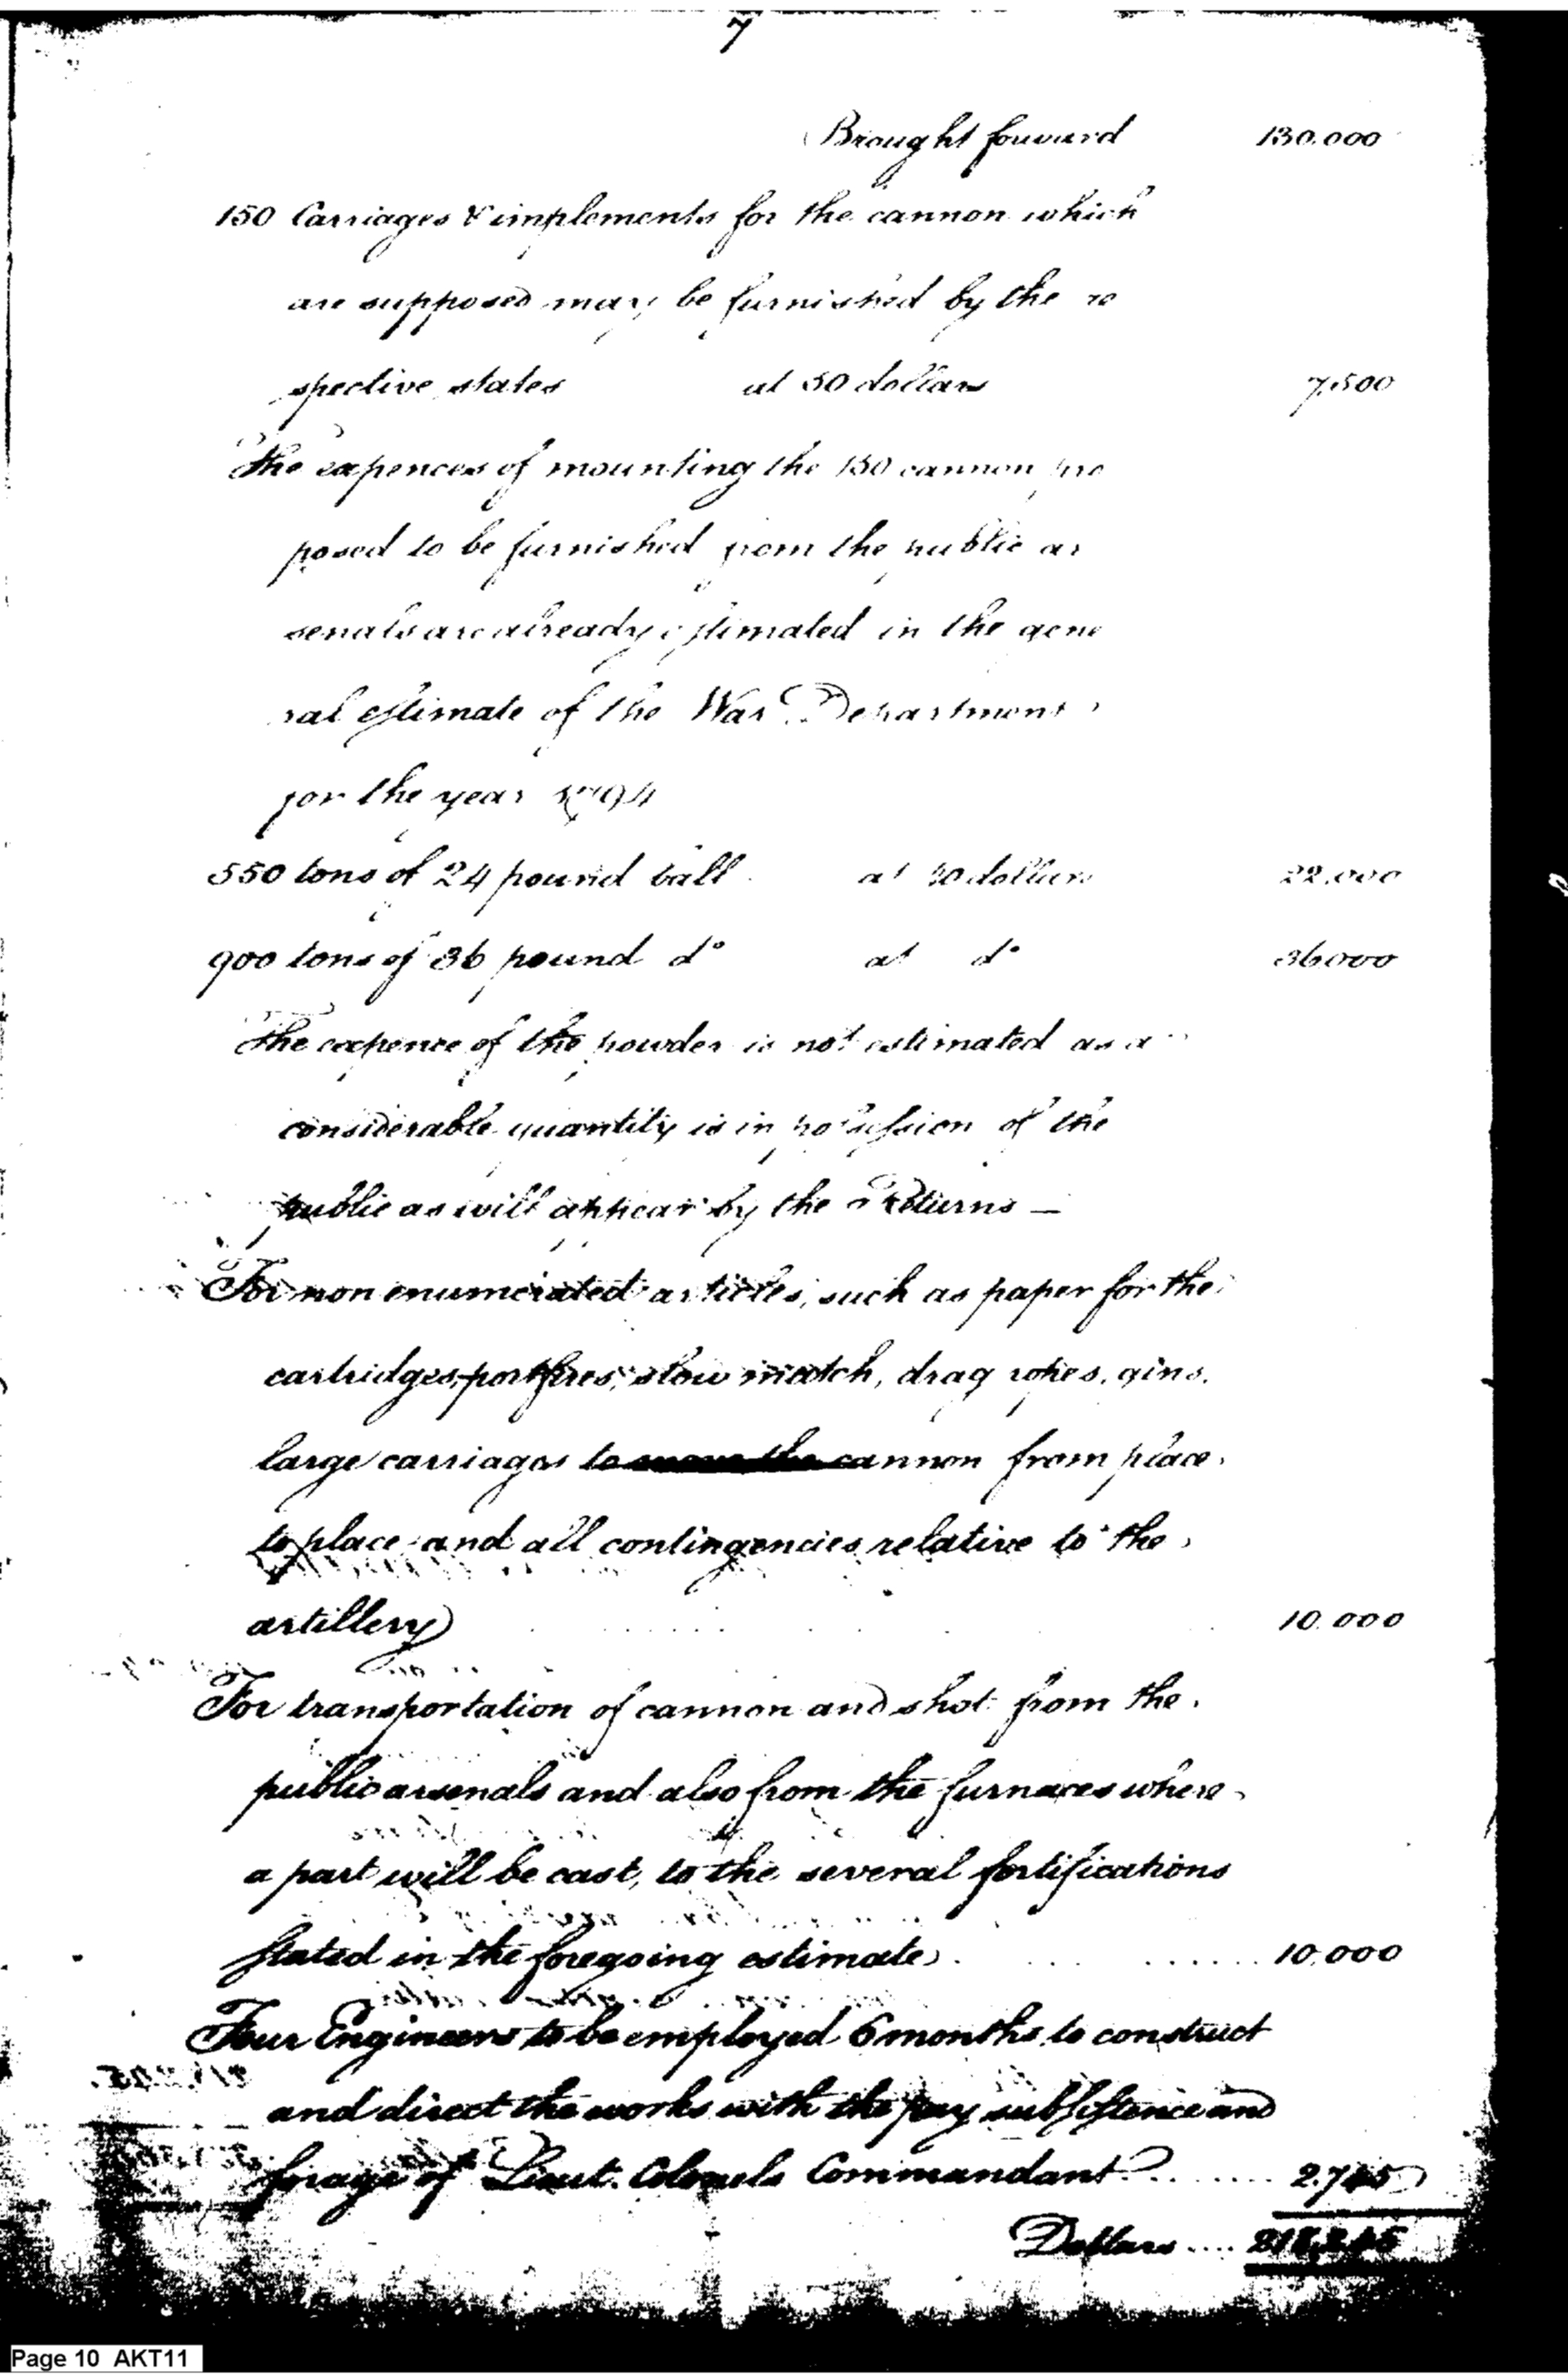 7
Brought forward 130.000
150 Carriages & implements for the cannon which
are supposed may be furnished by the re
spective states at 50 dollars 7,500
The expences of mounting the 150 cannon pro
posed to be furnished from the public ar
senals are already estimated in the gene
ral estimate of the War Department
for the year 1794
550 tons of 24 pound ball at 40 dollars 22.000
900 tons of 36 pound do at do 36000
The expence of the powder is not estimated as a
considerable quantity is in possession of the
public as will appear by the Returns —
For non enumerated articles, such as paper for the
cartridges, portfires, slow match, drag ropes, gins,
large carriages to move the cannon from place
to place and all contingencies relative to the
artillery 10.000
For transportation of cannon and shot from the
public arsenals and also from the furnaces where
a part will be cast, to the several fortifications
stated in the foregoing estimate 10.000
Four Engineers to be employed 6 months to construct
and direct the works with the pay subsistence and
forage of Lieut. Colonels Commandant 2.745
Dollars 218,245
Page 10 AKT11